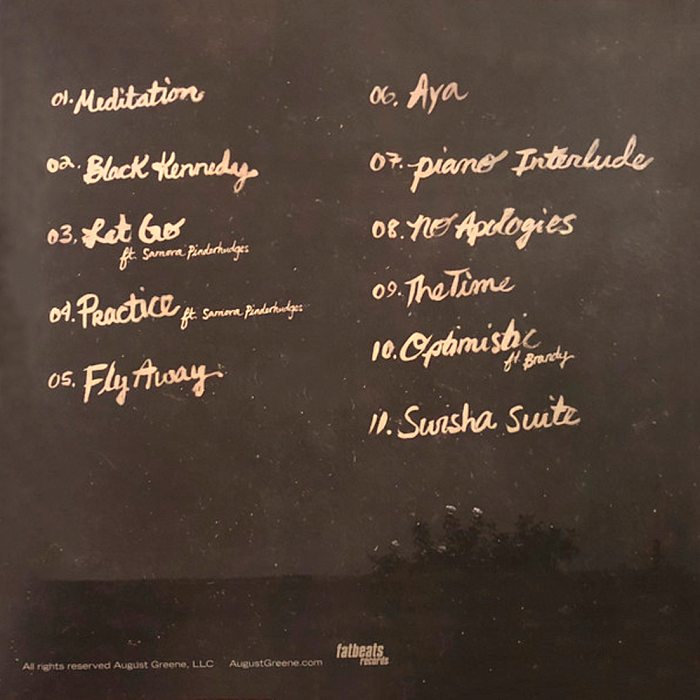 01. Meditation
02. Black Kennedy
03. Let Go
ft. Samora Pinderhudges
04. Practice ft. Samora Pinderhudges
05. Fly Away
06. Aya
07. piano Interlude
08. No Apologies
09. The Time
10. Optimistic
ft. Brandy
11. Swisha Suite
All rights reserved August Greene, LLC AugustGreene.com
fatbeats
records